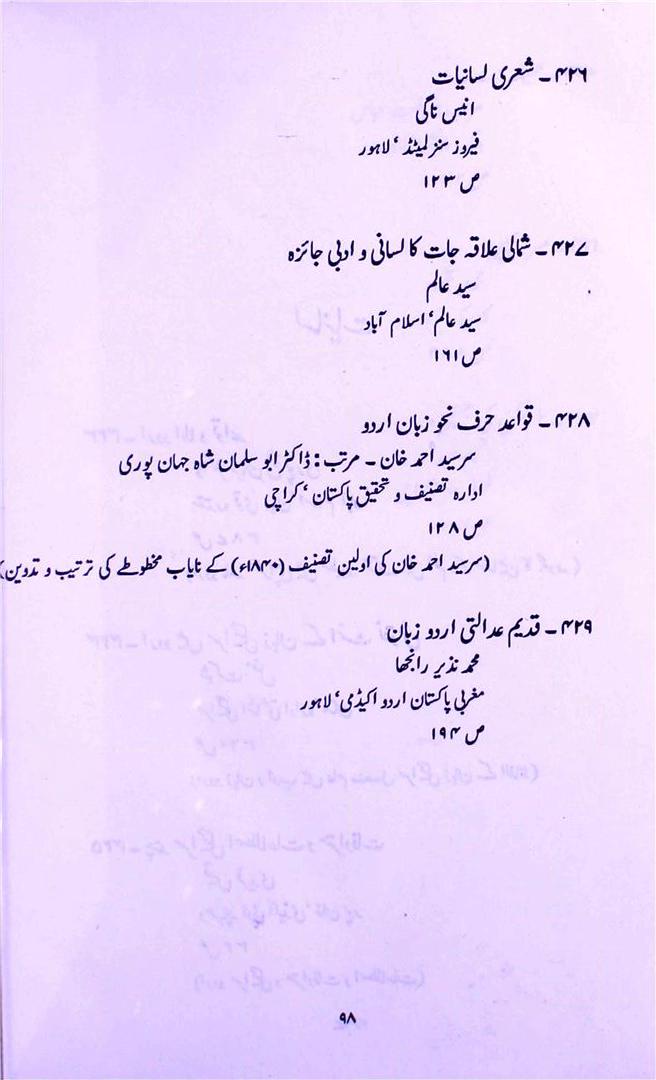 ۴۲۶ ۔ شعری لسانیات
انیس ناگی
فیروز سنز لمیٹڈ ‘ لاہور
ص ۱۲۳
۴۲۷ ۔ شمالی علاقہ جات کا لسانی و ادبی جائزہ
سید عالم
سید عالم‘ اسلام آباد
ص ۱۶۱
۴۲۸ ۔ قواعد حرف نحو زبان اردو
سرسید احمد خان ۔ مرتب : ڈاکٹر ابو سلمان شاہ جہان پوری
ادارہ تصنیف و تحقیق پاکستان ‘ کراچی
ص ۱۲۸
(سرسید احمد خان کی اولین تصنیف (۱۸۴۰ء) کے نایاب مخطوطے کی ترتیب و تدوین)
۴۲۹ ۔ قدیم عدالتی اردو زبان
محمد نذیر رانجھا
مغربی پاکستان اردو اکیڈمی‘ لاہور
ص ۱۹۴
۹۸